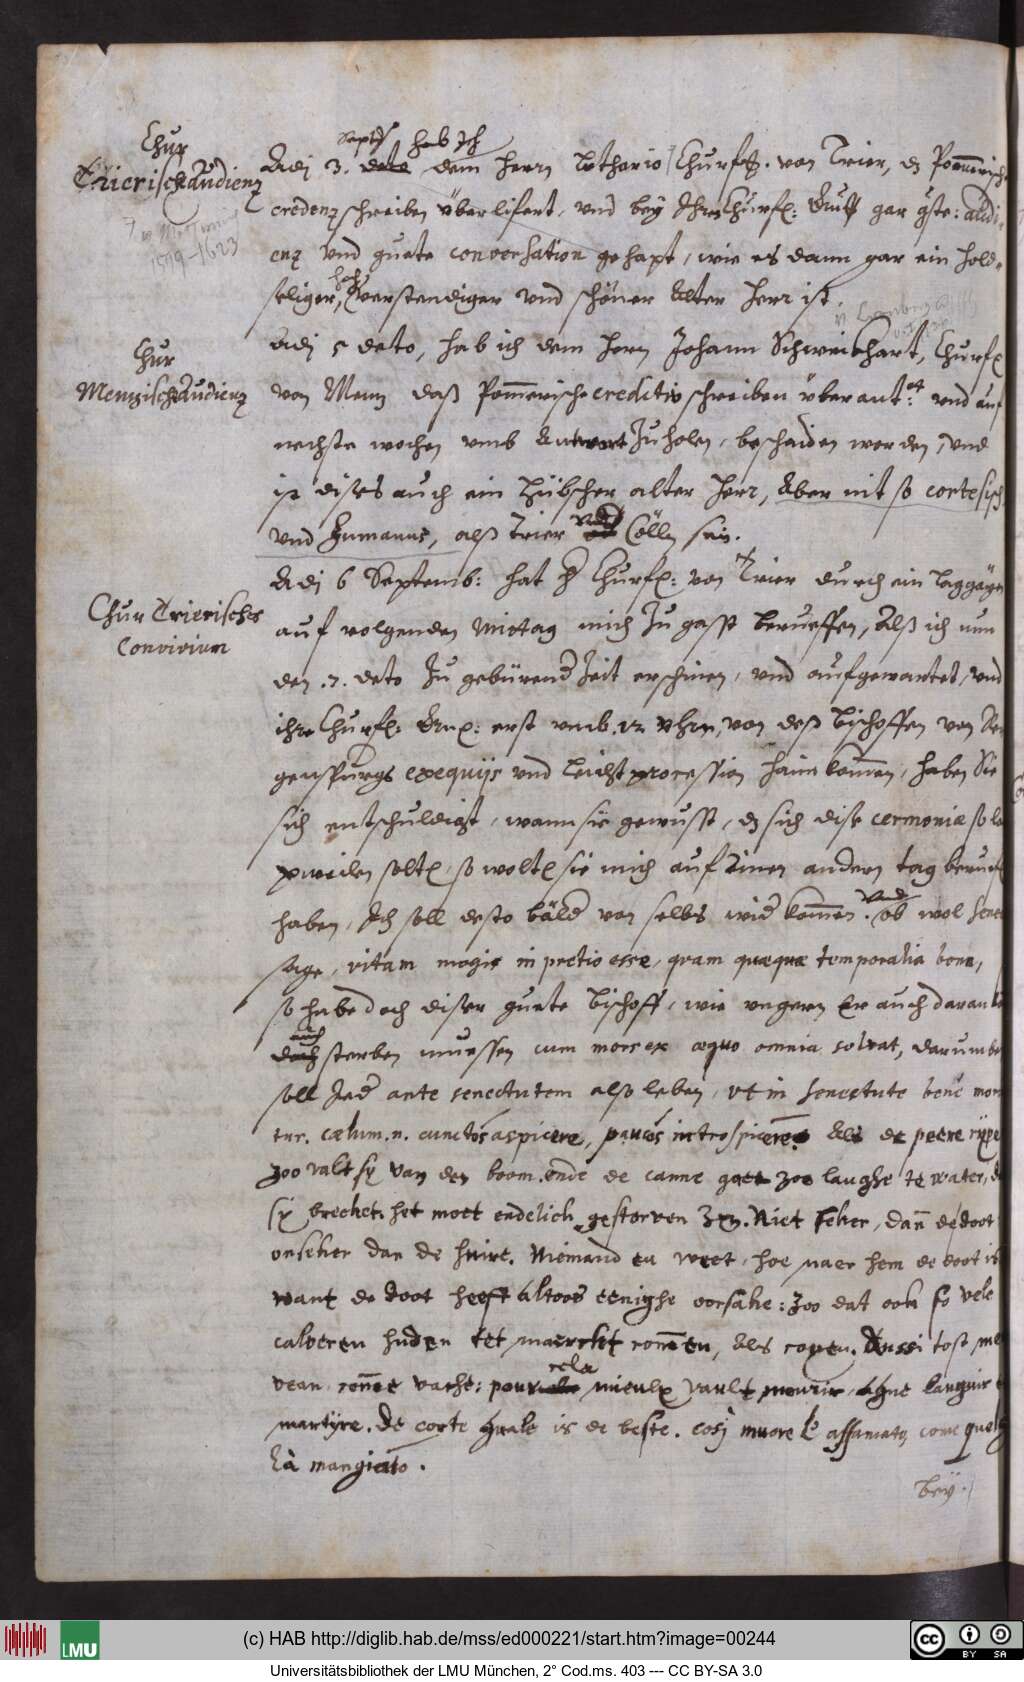 Chur
Trierisch Audienz
Septem hab Ich
Adj 3. dato dem herrn Lothario Churf. von Trier, dz Pommerisch
credenz schreiben überlifert, vnd bey Ihr Churf: Gn gar gste: audi-
enz vnd guete conversation gehapt, wie es dann gar ein hold-
hoch
seliger, verstendiger vnd schöner Alter herr ist.
Chur
Menzisch Audienz
Adj 5 dato, hab ich dem herrn Johann Schweikhart, Churf
von Menz daß Pommerische creditiv schreiben überant: vnd auf
nechste wochen vmb Antwort zu holen, beschaiden worden, vnd
ist dises auch ein hübscher alter herr, Aber nit so cortesisch
vnd humanus, alß Trier vnd Cölln sein.
Chur Trierisches
Convivium
Adj 6 Septemb: hat h Churf: von Trier durch ein Laggayen
auf volgenden Mittag mich zu gasst berueffen, Alß ich nun
den .7. dato zu gebürender Zeit erschinen, vnd aufgewartet, vnd
ihre Churf: Gn: erst vmb .12 vhrn, von deß Bischoffen von Re
genspurgs exequijs vnd Leichtprocession haim kommen, haben Sie
sich entschuldigt, wann sie gewusst, dz sich dise cermoniæ so la
weilen solten, so wolten sie mich auf einen andern tag beruef
haben, Ich soll desto bälder von selbs wider kommen. Vnd ob wol Sene
sage, vitam magis in pretio esse, quam quæquæ temporalia bona,
so habe doch diser guete Bischoff, wie vngern Er auch daran
auch
doch sterben muessen cum mors ex æquo omnia solvat, darumb
soll Jeder ante senectutem also leben, vt in senectute bene mor
tur. cælum .n. cunctos aspicere, paucos introspicere. Als de peere rype
zoo valt sy van den boom. ende de canne gaet zoo langhe te water, d
sy brecket. het moet endelich gestorven zyn. Niet seker, dan de doot
onseker dan de huire. Niemand en weet, hoe naer hem de doot is
want de doot heeft altoos eenighe oorsake: zoo dat ook so vele
calveren huden tet maerckt commen, als coyen. Aussi tost me
cela
vean comme vache: pour mieulx vault mourir, que languir
martyre. De corte quale is de beste. così muore l' affamato, come quel
hà mangiato.
bey.
(c) HAB http://diglib.hab.de/mss/ed000221/start.htm?image=00244
LMU
CC BY SA
Universitätsbibliothek der LMU München, 2° Cod.ms. 403 --- CC BY-SA 3.0